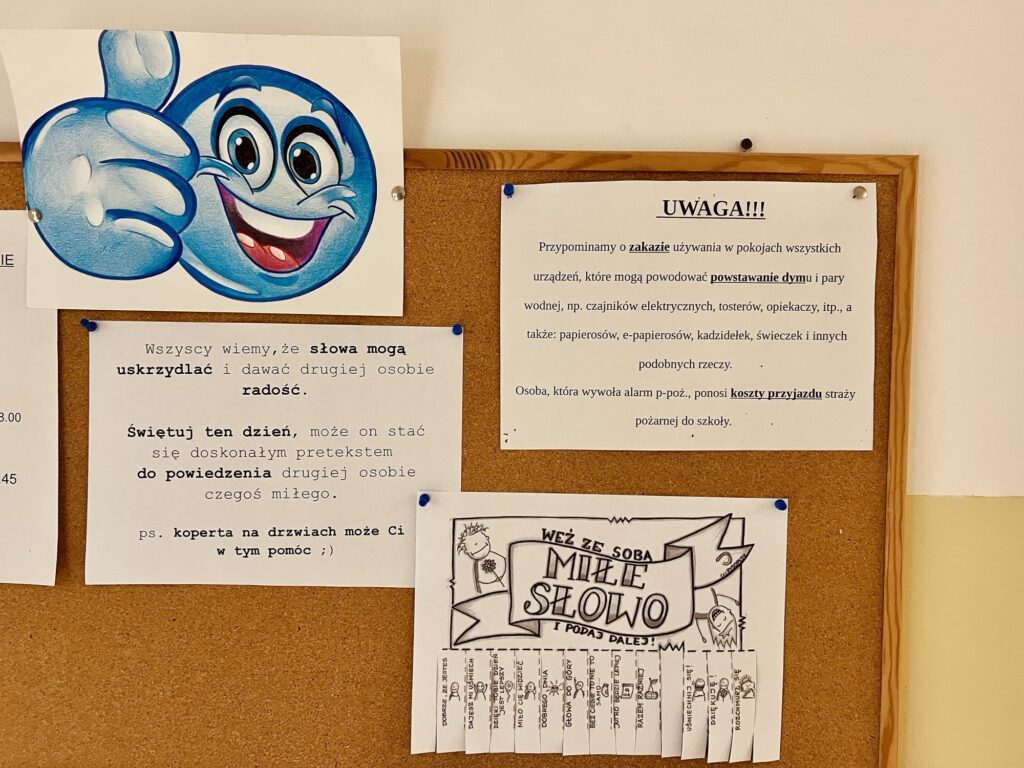 IE
8.00
:45
Wszyscy wiemy,że słowa mogą
uskrzydlać i dawać drugiej osobie
radość.
Świętuj ten dzień, może on stać
się doskonałym pretekstem
do powiedzenia drugiej osobie
czegoś miłego.
ps. koperta na drzwiach może Ci
w tym pomóc ;)
UWAGA!!!
Przypominamy o zakazie używania w pokojach wszystkich
urządzeń, które mogą powodować powstawanie dymu i pary
wodnej, np. czajników elektrycznych, tosterów, opiekaczy, itp., a
także: papierosów, e-papierosów, kadzidełek, świeczek i innych
podobnych rzeczy.
Osoba, która wywoła alarm p-poż., ponosi koszty przyjazdu straży
pożarnej do szkoły.
WEŹ ZE SOBĄ
MIŁE
SŁOWO
I PODAJ DALEJ!
DOBRZE, ŻE JESTEŚ
DAJESZ MI UŚMIECH
DZIĘKI TOBIE DZIEŃ
JEST LEPSZY
MIŁO CIĘ WIDZIEĆ
DOBREGO DNIA
GŁOWA DO GÓRY
BEZ CIEBIE TO NIE TO
SAMO
JUTRO BĘDZIE LEPIEJ
RAZEM RAŹNIEJ
UŚMIECHNIJ SIĘ!
DZIĘKUJĘ!
ROZCHMURZ SIĘ